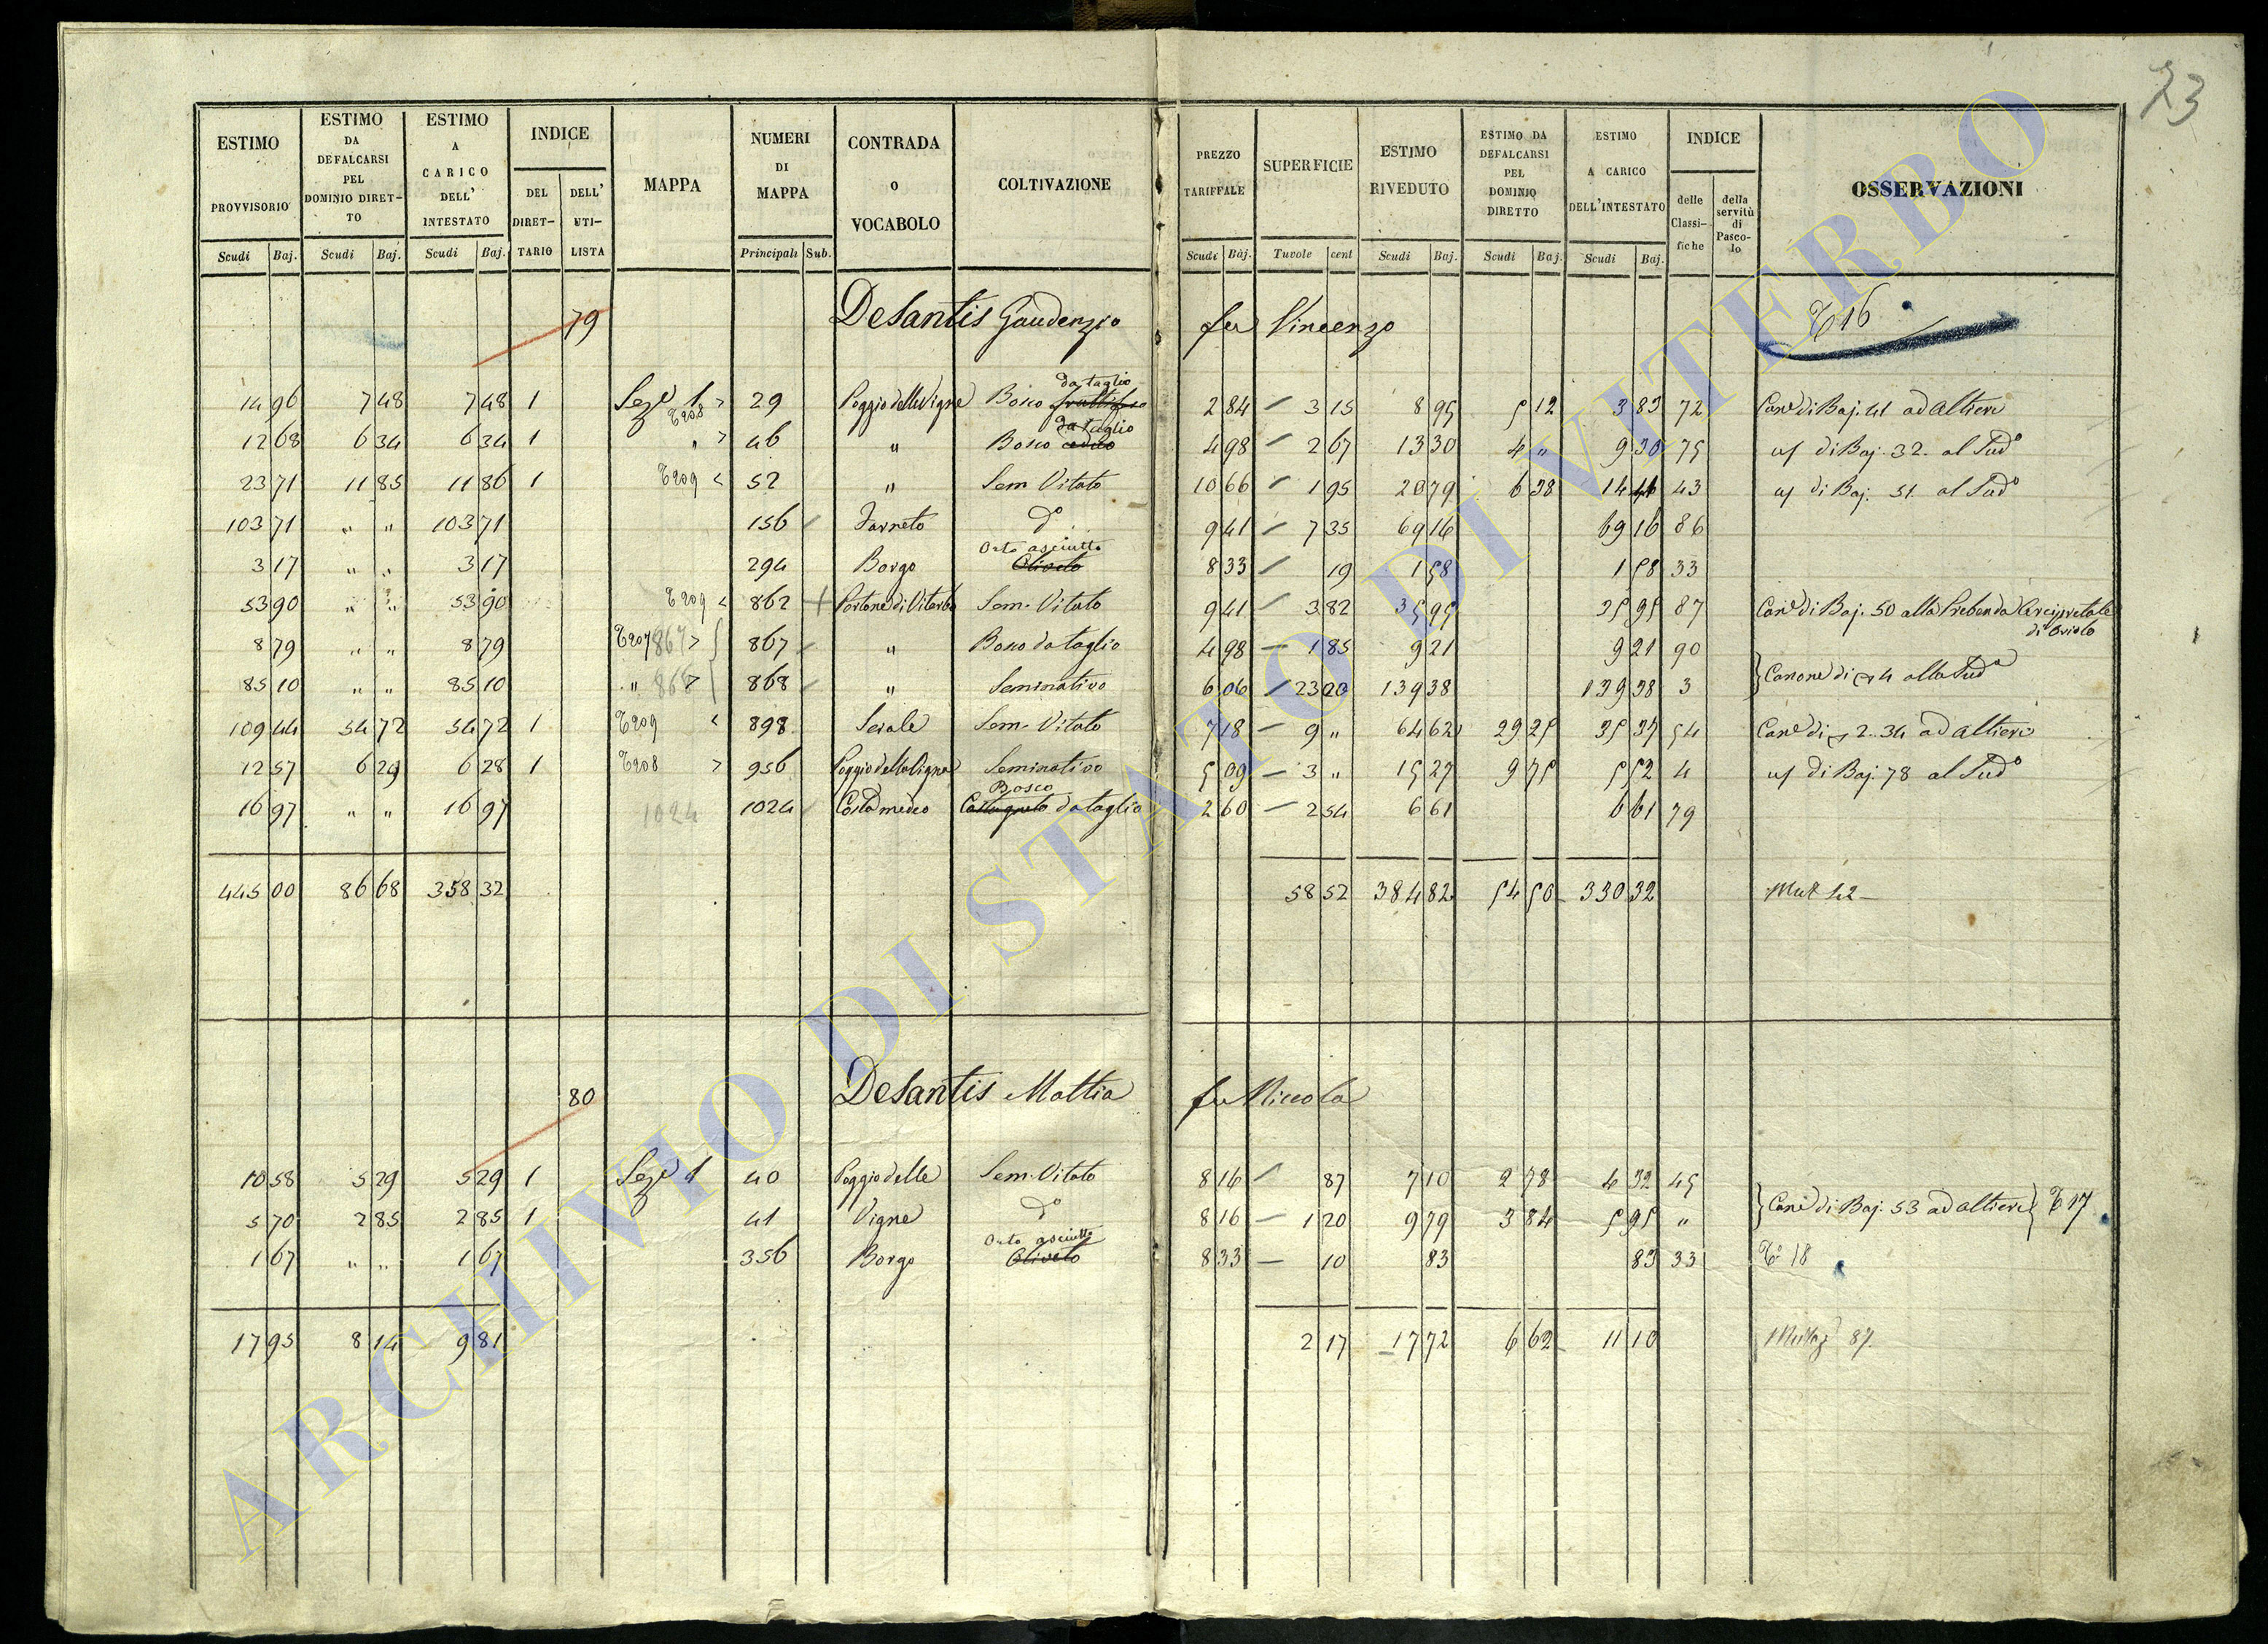 23
ESTIMO PROVVISORIO Scudi Baj.
ESTIMO DA DEFALCARSI PEL DOMINIO DIRETTO Scudi Baj.
ESTIMO A CARICO DELL' INTESTATO Scudi Baj.
INDICE DEL DIRETTARIO DELL' UTILISTA
MAPPA
NUMERI DI MAPPA Principali Sub.
CONTRADA O VOCABOLO
COLTIVAZIONE
PREZZO TARIFFALE Scudi Baj.
SUPERFICIE Tavole cent
ESTIMO RIVEDUTO Scudi Baj.
ESTIMO DA DEFALCARSI PEL DOMINIO DIRETTO Scudi Baj.
ESTIMO A CARICO DELL'INTESTATO Scudi Baj.
INDICE delle Classifiche della servitù di Pascolo
OSSERVAZIONI
79 Desantis Gaudenzio fu Vincenzo 16
14 96 7 48 7 48 1 Sez.e 1 29 Poggio delle Vigne Bosco da taglio 2 84 3 15 8 95 5 12 3 83 72 Can.e di Baj. 41 ad Altieri
12 68 6 34 6 34 1 " 46 " Bosco da taglio 4 98 2 67 13 30 4 " 9 30 75 di Baj. 32 al Sud.o
23 71 11 85 11 86 1 52 " Sem Vitato 10 66 1 95 20 79 6 38 14 41 43 di Baj. 51 al Sud.o
103 71 " " 103 71 156 Farneto d.o 9 41 7 35 69 16 69 16 86
3 17 " " 3 17 294 Borgo Orto asciutto Oliveto 8 33 19 1 58 1 58 33
53 90 " " 53 90 862 Portone di Viterbo Sem. Vitato 9 41 3 82 35 95 35 95 87 Can.e di Baj. 50 alla Prebenda Arcipretale di Oriolo
8 79 " " 8 79 867 867 " Bosco da taglio 4 98 1 85 9 21 9 21 90
85 10 " " 85 10 " 868 868 " Seminativo 6 06 23 20 139 38 139 38 3 Canone di 4 alla Sud.a
109 44 54 72 54 72 1 898 Serale Sem. Vitato 7 18 9 " 64 62 29 25 35 37 54 Can.e di 2.34 ad Altieri
12 57 6 29 6 28 1 956 Poggio della Vigna Seminativo 5 09 3 " 15 27 9 75 5 52 4 di Baj. 78 al Sud.o
16 97 " " 16 97 1024 1024 Bosco da taglio 2 60 2 54 6 61 6 61 79
445 00 86 68 358 32 58 52 384 82 54 50 330 32
80 Desantis Mattia fu Niccola
10 58 5 29 5 29 1 Sez.e 1 40 Poggio delle Sem. Vitato 8 16 87 7 10 2 78 4 32 45
5 70 2 85 2 85 1 41 Vigne d.o 8 16 1 20 9 79 3 84 5 95 " Can.e di Baj. 53 ad Altieri 17
1 67 " " 1 67 356 Borgo Orto asciutto Oliveto 8 33 10 83 83 33 18
17 95 8 14 9 81 2 17 17 72 6 62 11 10 87
ARCHIVIO DI STATO DI VITERBO